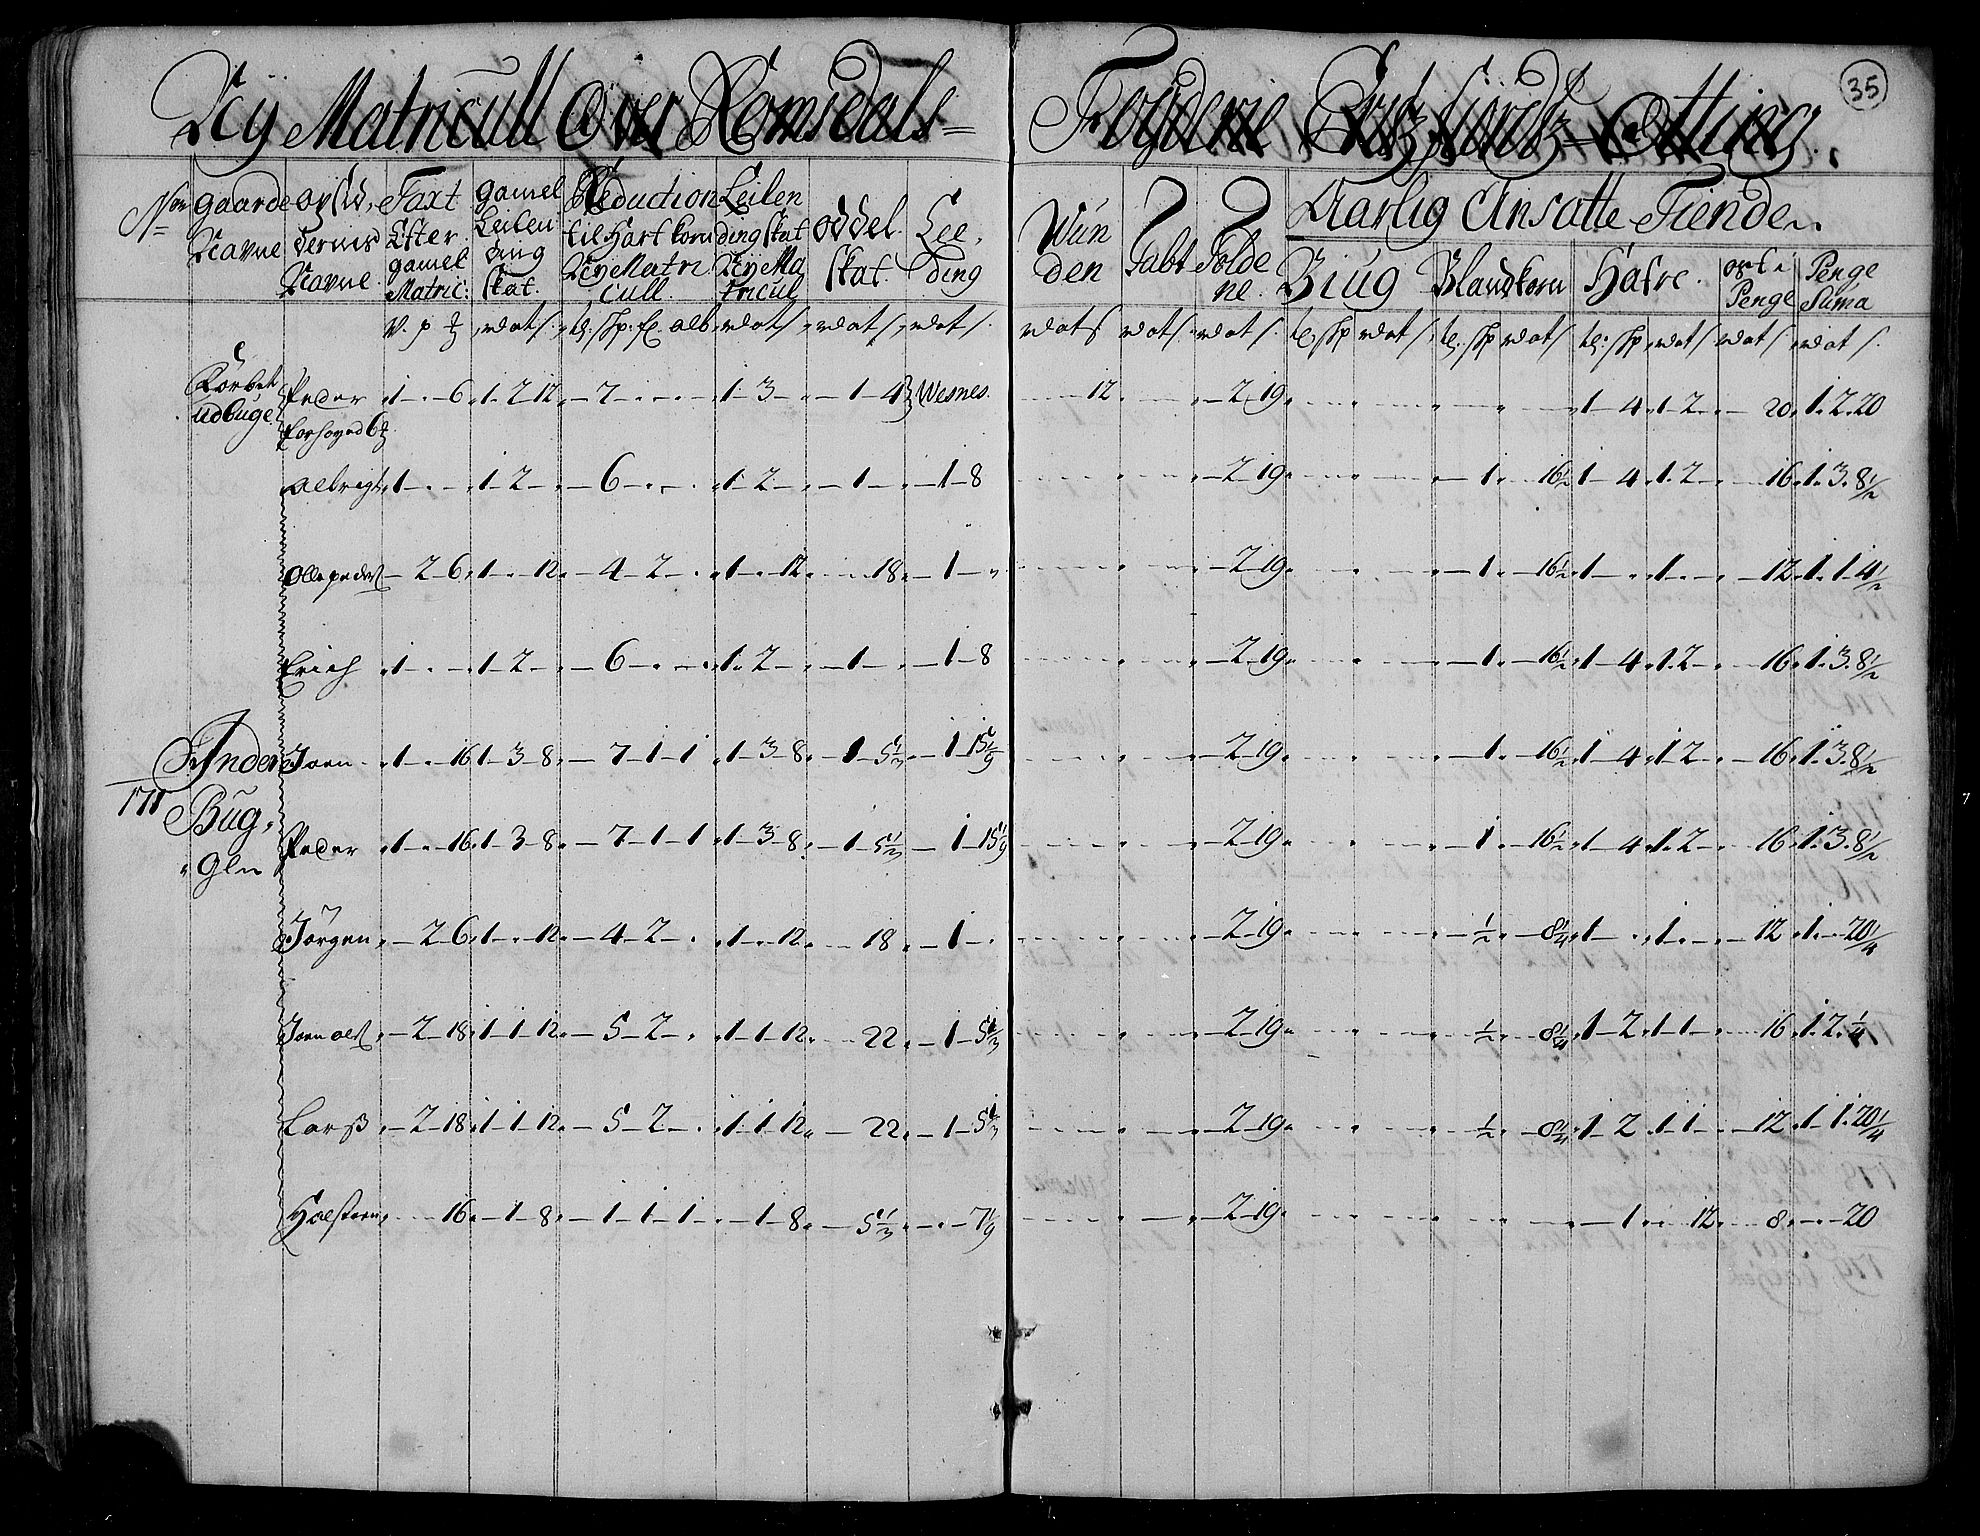 Nÿ Matricull Over Romsdals=
Fogderie Ertzfiords Otting. 35
No
gaarde Navne
opsiddernis Navne
Taxt Efter gamel Matric:
gamel Leilending Skat.
Reduction til Hart korn Nye Matricull.
Leilending skat Nye Matricul
oddel Skat.
Leeding
Wünden
Tabt
Folde ne.
Aarlig Ansatte Tiende.
Biug Blandkorn Hafre. oste Penge Penge Suma
V. p
Korbet udbuge Peder 1 - 6 1-2-12 7 1-3 1-4 Wesnes. 12 2-19 1-4 1-2 20 1-2-20
forhøyed 6
albrigt 1 1-2 6 1-2 1 1-8 2-19 1 16½ 1-4 1-2 16 1-3-8½
Olle peders 2-6 1-12 4-2 1-12 18 1 2-19 1 16½ 1 1 12 1-1-4½
Erich 1 1-2 6 1-2 1 1-8 2-19 1 16½ 1-4 1-2 16 1-3-8½
171 Inder Bug Joen 1-16 1-3-8 7-1-1 1-3-8 1-5⅓ 1-15 1/9 2-19 1 16½ 1-4 1-2 16 1-3-8½
Peder 1-16 1-3-8 7-1-1 1-3-8 1-5⅓ 1-15 1/9 2-19 1 16½ 1-4 1-2 16 1-3-8½
Jörgen 2-6 1-12 4-2 1-12 18 1 2-19 ½ 8¼ 1 1 12 1-20¼
Joen ols 2-18 1-1-12 5-2 1-1-12 22 1-5⅓ 2-19 ½ 8¼ 1-2 1-1 16 1-2-¼
Larss 2-18 1-1-12 5-2 1-1-12 22 1-5⅓ 2-19 ½ 8¼ 1-2 1-1 12 1-1-20¼
Halsteen 16 1-8 1-1-1 1-8 5⅓ 7 1/9 2-19 1 12 8 20